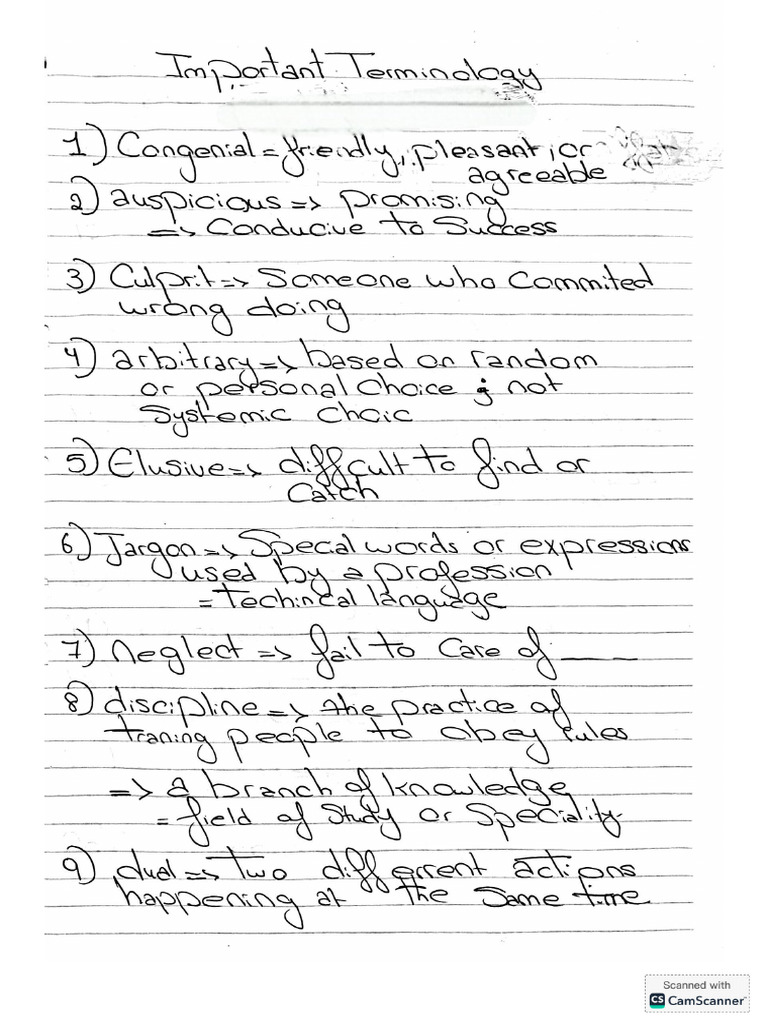 Important Terminology
1) Congenial = friendly, pleasant, or
agreeable
2) auspicious => promising
=> Conducive to Success
3) Culprit => Someone who Commited
wrong doing
4) arbitrary => based on random
or personal Choice ; not
Systemic Choic
5) Elusive => difficult to find or
Catch
6) Jargon => Special words or expressions
used by a profession
= techincal language
7) neglect => fail to Care of ____
8) discipline => the practice of
traning people to obey rules
=> a branch of knowledge
= field of Study or Speciality
9) dual => Two different actions
happening at the Same time
Scanned with
CS CamScanner